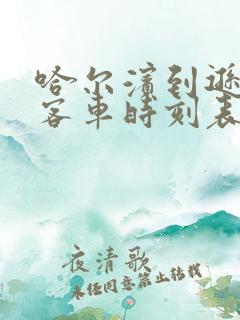 哈尔滨到逊
客车时刻表
夜清歌
未经同意禁止转载